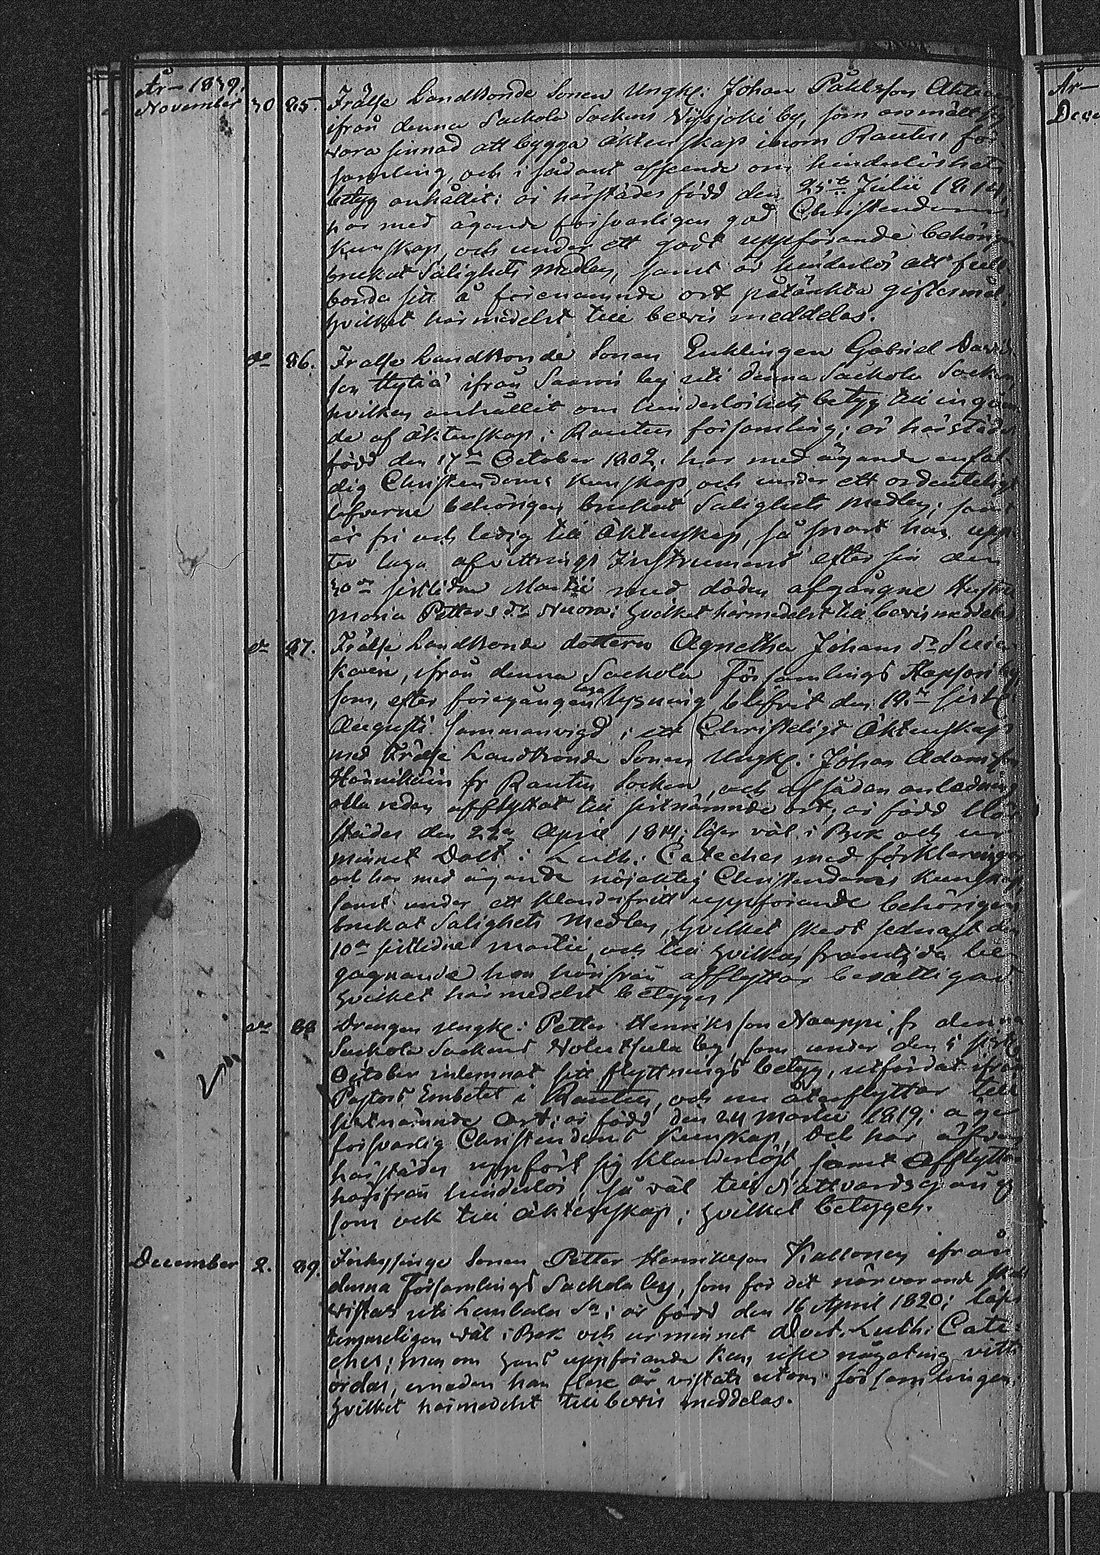 År 1839. År
November 30 85. Frälse Landbonde Sonen Ungk: Johan Påhlsson Ahtiai Dece
ifrån denna Sackola Sockens Wiisjoki by, som anmält sig
vara sinnad att bygga äktenskap inom Rautus för
samling, och i sådant afseende om hinderlöshets
betyg anhållit: är härstädes född den 25te Julii 1814;
har med ägande försvarligen god Christendoms
kunskap och under ett godt uppförande behörigen
brukat Salighets medlen, samt är hinderlös att full
borda sitt å förenämnde ort påtänkta giftermål.
hvilket härmedelst till bevis meddelas.
do 86. Frälse Landbonde Sonen Enklingen Gabriel Davids
son Hytiä ifrån Saaris by uti denna Sackola Socken
hvilken anhållit om hinderlöshets betyg till ingåen
de af äktenskap i Rautus församling; är härstädes
född den 17de October 1802. har med ägande enfal
dig Christendoms kunskap och under ett ordenteligt
lefverne behörigen brukat Salighets medlen; samt
är fri och ledig till Äktenskap, så snart han upp
ter laga afvittrings Instrument efter sin den
30de sistledne Martii med döden afgångne Hustru
Maria Petters dr Nuora: hvilket härmedelst till bevis meddelas
do 87. Frälse Landbonde dottern Agnetha Johans dr
ifrån denna Sackola Församlings Hapsois by
som, efter föregången lysning blifvit den 18de sistl.
Augusti Sammanvigd i ett Christeligt Äktenskap
med Frälse Landbonde Sonen Ungk: Johan Adamsson
fr Rautus Socken, och af sådan anledning
alla redan afflyttat till sistnämnde ort; är född här
städes den 22dn April 1814; läser väl i Bok och ur
minnet Doct: Luth: Cateches med förklaringen
och har med ägande nöjaktig Christendoms kunskap
samt under ett klanderfritt uppförande behörigen
brukat Salighets medlen, hvilket skedt sednast den
10de sistledne Martii, och till hvilkas framtida be
gagnande hon härifrån afflyttar berättigad
hvilket härmedelst betygas
do 88 Drengen Ungk: Petter Henriksson Naappi, fr denna
Sackola Sockens by, som under den 5 sistl.
October inlemnat sitt flyttnings betyg, utfärdat ifrån
Pastors Embetet i Rautus, och nu återflyttar till
sistnämnde ort; är född den 24 Martii 1819; äger
försvarlig Christendoms kunskap, Och har äfven
härstädes uppfört sig klanderlöst, samt Afflyttar
härifrån hinderlös, så väl till Nattvardsgång
som ock till äktenskap; hvilket betygas.
December 2. 89. Inhysinge Sonen Petter Henriksson Kallonen ifrån
denna Församlings Sackola by, som för det närvarande skall
vistas uti Lembala Sn; är född den 16 April 1820; läser
temmeligen väl i Bok och ur minnet Doct: Luth: Cate
ches; men om hans uppförande kan icke någoting vitts
ordas, emedan han flere år vistats utom församlingen,
hvilket härmedelst till bevis meddelas.